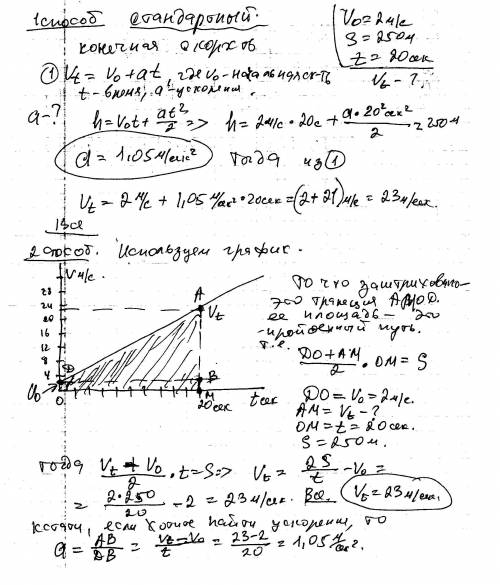 1 способ стандартный.
конечная скорость
V₀ = 2 м/с
S = 250 м
t = 20 сек
Vt - ?
① Vt = V₀ + at, где V₀ - начальная ск-ть
t - время, a - ускорение.
a - ?
h = V₀t + at²/2 => h = 2 м/с · 20с + a·20² сек²/2 = 250 м
a = 1,05 м/сек² тогда из ①
Vt = 2 м/с + 1,05 м/сек² · 20 сек = (2 + 21) м/с = 23 м/сек.
Всё
2 способ. Используем график.
V м/с.
28
24
20
16
12
8
4
V₀
D
0
A
Vt
B
M
20 сек
t сек
То что заштриховано-
это трапеция ABMOD.
ее площадь - это
пройденный путь.
т.е.
DO + AM / 2 · OM = S
DO = V₀ = 2 м/с.
AM = Vt - ?
OM = t = 20 сек.
S = 250 м.
тогда Vt + V₀ / 2 · t = S => Vt = 2S/t - V₀ =
= 2·250/20 - 2 = 23 м/сек. Всё. Vt = 23 м/сек.
кстати, если хотите найти ускорение, то
a = AB/DB = Vt - V₀ / t = 23 - 2 / 20 = 1,05 м/сек².